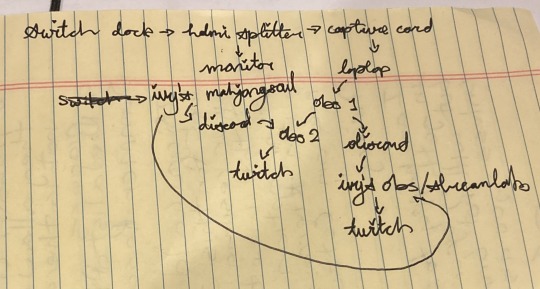 switch dock → hdmi splitter → capture card
monitor laptop
switch → ivy's mahjongsoul obs 1
discord → obs 2 discord
twitch ivy's obs/streamlabs
twitch